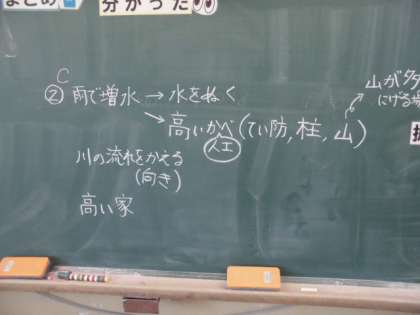 まとめ
分かった
C
② 雨で増水 → 水をぬく
高いかべ(てい防, 柱, 山)
人工
山が多
にげる場
川の流れをかえる
(向き)
高い家